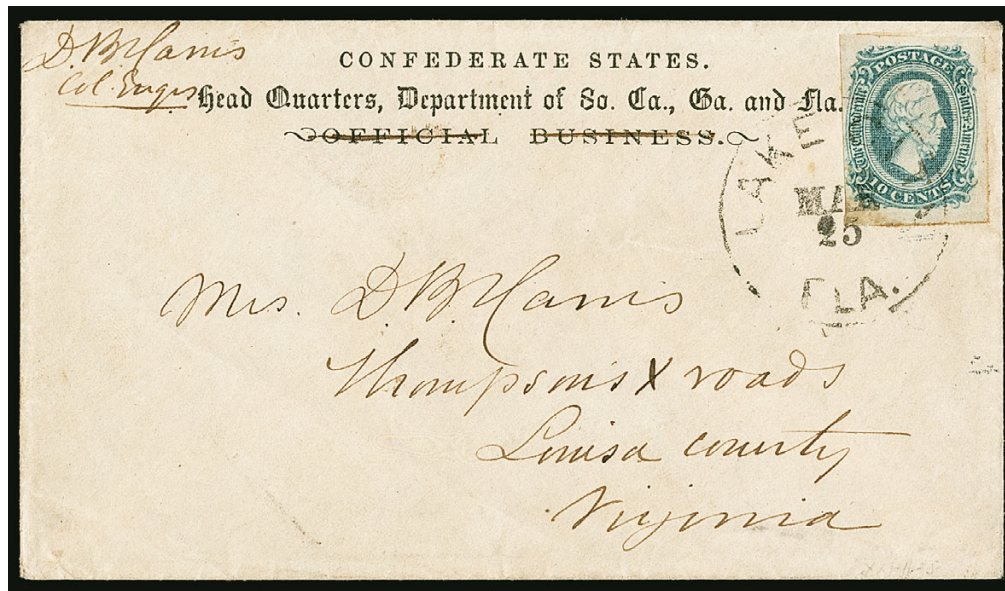 D. B. Harris
Col. Engrs
CONFEDERATE STATES.
Head Quarters, Department of So. Ca., Ga. and Fla.
OFFICIAL BUSINESS.
POSTAGE
The Confederate States of America
10 CENTS
LAKE
MAR
25
FLA.
Mrs. D B Harris
Thompson's X roads
Louisa county
Virginia